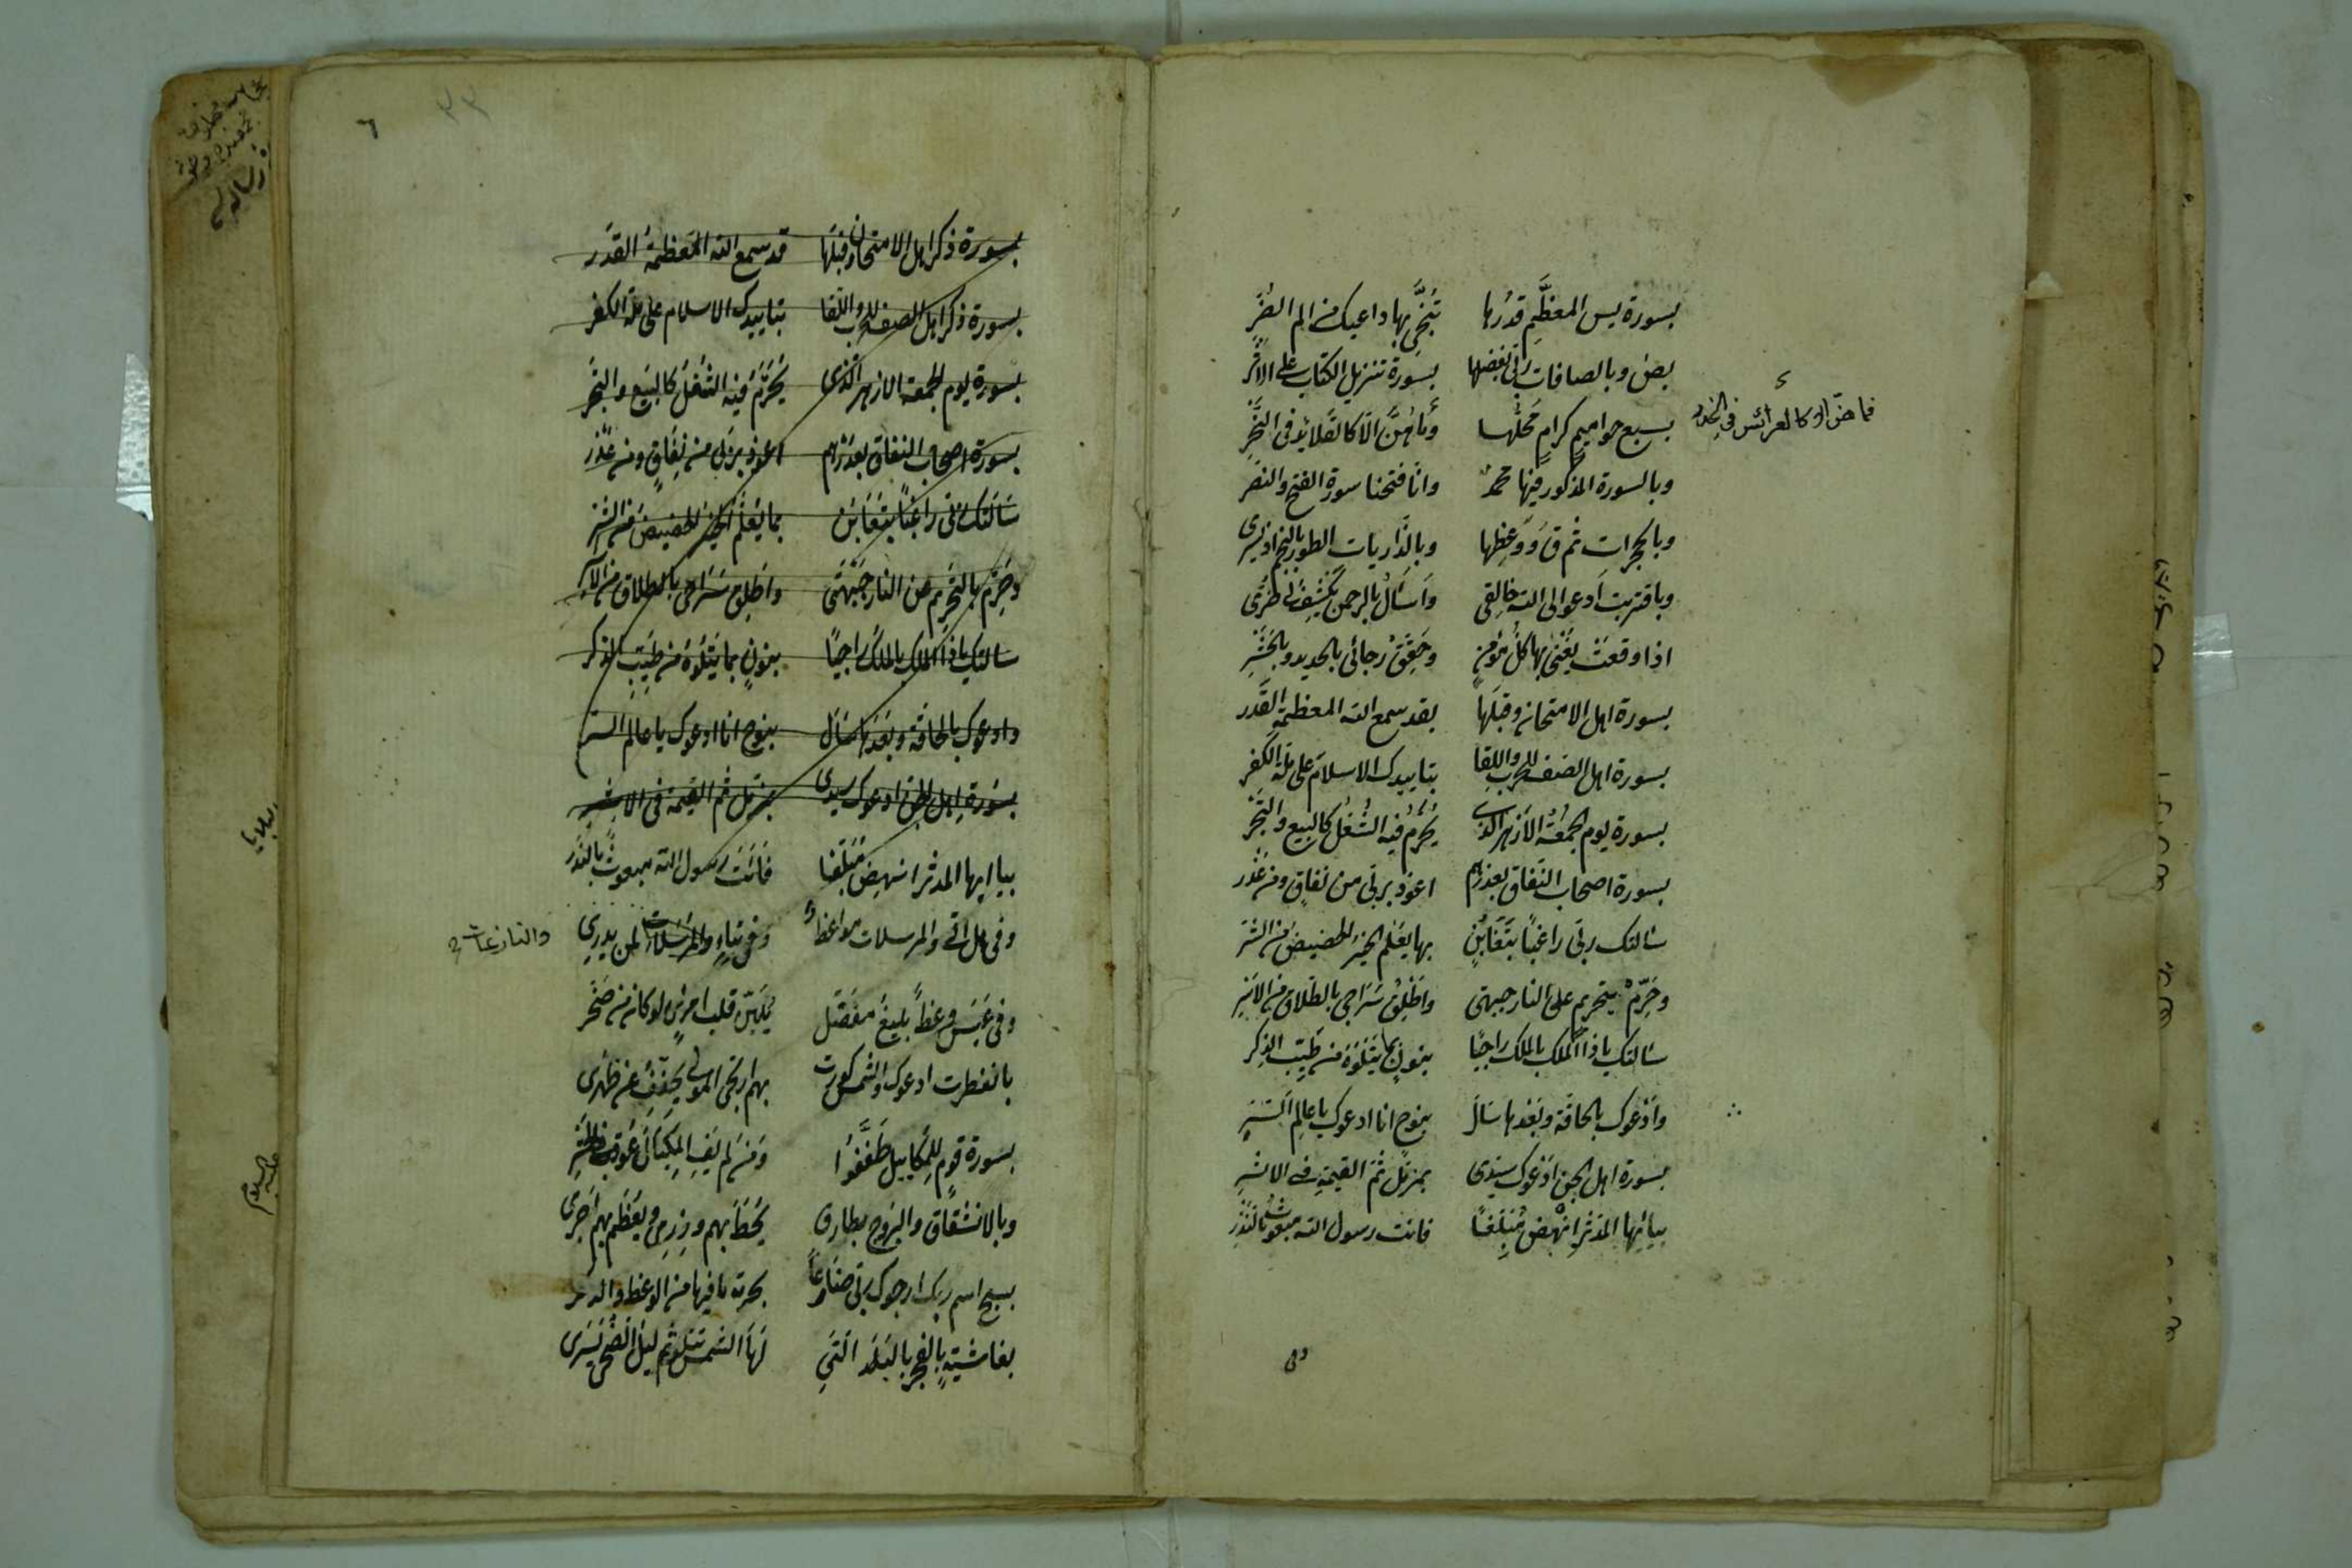 بسورة يس المعظَّمِ قدرُها تُنجّي بها داعيك من الم الضرِّ
بصٓ وبالصافات ربّي بفضلها بسورة تنزيل الكتاب على الاثر
بسبع حواميمٍ كرامٍ محلُّها وما هُنَّ الّا كالقلائد في النحرِ
فما هنّ الا كالعرائس في الخدر
وبالسورة المذكور فيها محمد وانّا فتحنا سورة الفتح والنصر
وبالحجرات ثم ق ووعظها وبالذاريات الطور بالنجم اذ يسرى
وباقتربت ادعو الى الله خالقي واسأل بالرحمن يكشف لي ضرّي
اذا وقعت يُغنى بها كل مؤمنٍ وحقّق رجائي بالحديد وبالحشرِ
بسورة اهل الامتحان وقبلها بقد سمع الله المعظمة القدر
بسورة اهل الصف للحرب واللقا بتاييدك الاسلام على ملة الكفر
بسورة يوم الجمعة الازهر الذي يُحرَّم فيه الشُّغلُ كالبيع والتجر
بسورة اصحاب النفاق بعذرهم اعوذ بربي من نفاقٍ ومن غدر
سالتك ربي راغبًا بتغابنٍ بها يُعلم الخير الحضيض من الشر
وحرّم بتحريم على النار جبهتي واطلق سراحي بالطلاق من الاسرِ
سالتك ياذا الملك بالملك راجيًا بنونٍ بما يتلوه من طيّب الذكر
وادعوك بالحاقة وبعدها سال بنوح انا ادعوك يا عالم السّرِ
بسورة اهل الجن ادعوك سيدى بمزمّل ثم القيمة في الاثرِ
بيا ايها المدثر انهض مُبلّغًا فانت رسول الله مبعوث بالنذر
وفى
٦
بسورة ذكر اهل الامتحان وقبلها قد سمع الله المعظمة القدر
بسورة ذكر اهل الصف للحرب واللقا بتاييدك الاسلام على ملة الكفر
بسورة يوم الجمعة الازهر الذى يُحرَّم فيه الشغل كالبيع والتجر
بسورة اصحاب النفاق بعذرهم اعوذ بربي من نفاقٍ ومن غدر
سالتك ربي راغبًا بتغابن بها يعلم الخير الحضيض من الشر
وحرّم بالتحريم عن النار جبهتى واطلق سراحى بالطلاق من الاسر
سالتك ياذا الملك بالملك راجيًا بنونٍ بما يتلوه من طيب الذكر
وادعوك بالحاقة وبعدها سال بنوح انا ادعوك يا عالم السر
بسورة اهل الجن ادعوك سيدى بمزمل ثم القيمة فى الاثر
بيا ايها المدثر انهض مبلّغا فانت رسول الله مبعوث بالنذر
وفى هل اتى والمرسلات مواعظ وفى نباءٍ والمرسلات لمن يدرى
والنازعات
وفى عبس وعظاً بليغ مفصّل يليّن قلب امرئٍ لو كان من صخر
بانفطرت ادعوك والشمس كورت بهم ارتجى المولى يخفف عن ظهرى
بسورة قومٍ للمكاييل طفّفوا ومن لم يف المكيال عوقب بالحشر
وبالانشقاق والبروج بطارق يحطّ بهم وزرى ويعظم بهم اجرى
بسبح اسم ربك ارجوك ربى ضارعاً بحرمة ما فيها من الوعظ والذكر
بغاشيةٍ بالفجر بالبلد التي لها الشمس تتلو ثم ليل الضحى يسرى